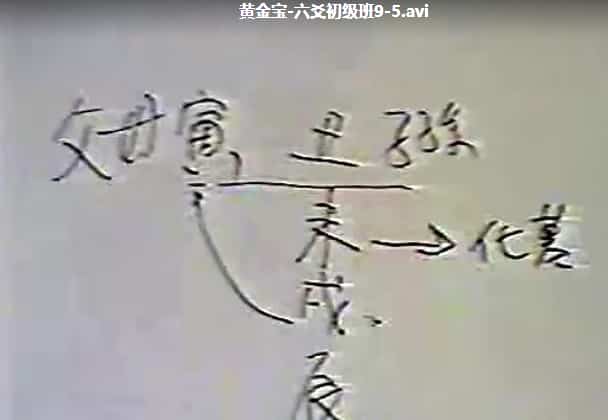 黄金宝-六爻初级班9-5.avi
父母寅 丑 子孙
未→化墓
戌、
辰